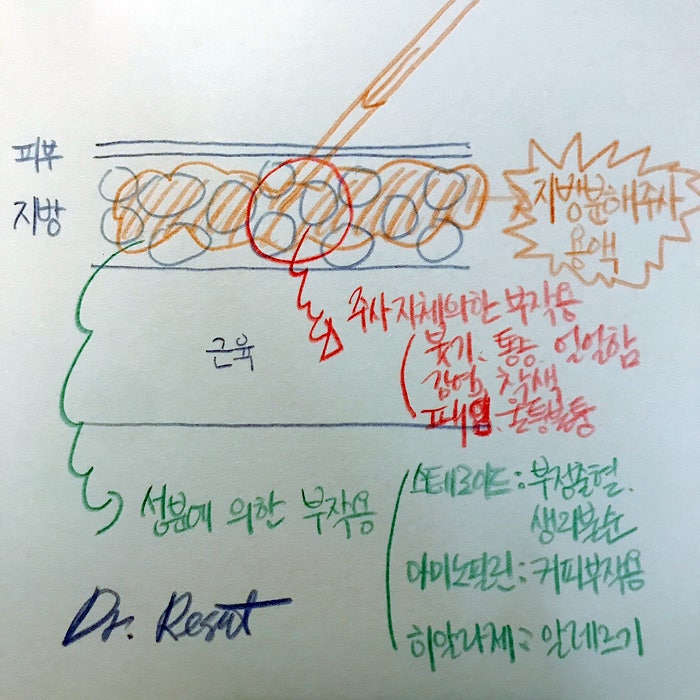 피부
지방
지방분해주사
용액
근육
주사자체의한 부작용
붓기, 통증, 얼얼함
감염, 착색
패임, 울퉁불퉁
성분에 의한 부작용
스테로이드: 부정출혈,
생리불순
아미노필린: 커피부작용
히알라제: 알레르기
Dr.